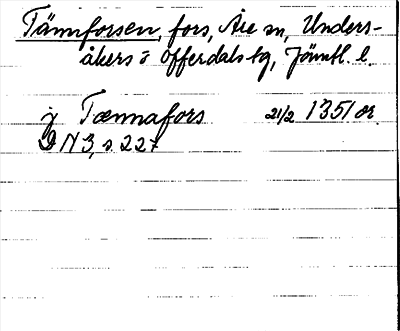 Tännforsen, fors, Åre sn, Unders-
åkers o Offerdals tg, Jämtl. l.
j Tænnafors 21/2 1351 or.
DN 3, s 227